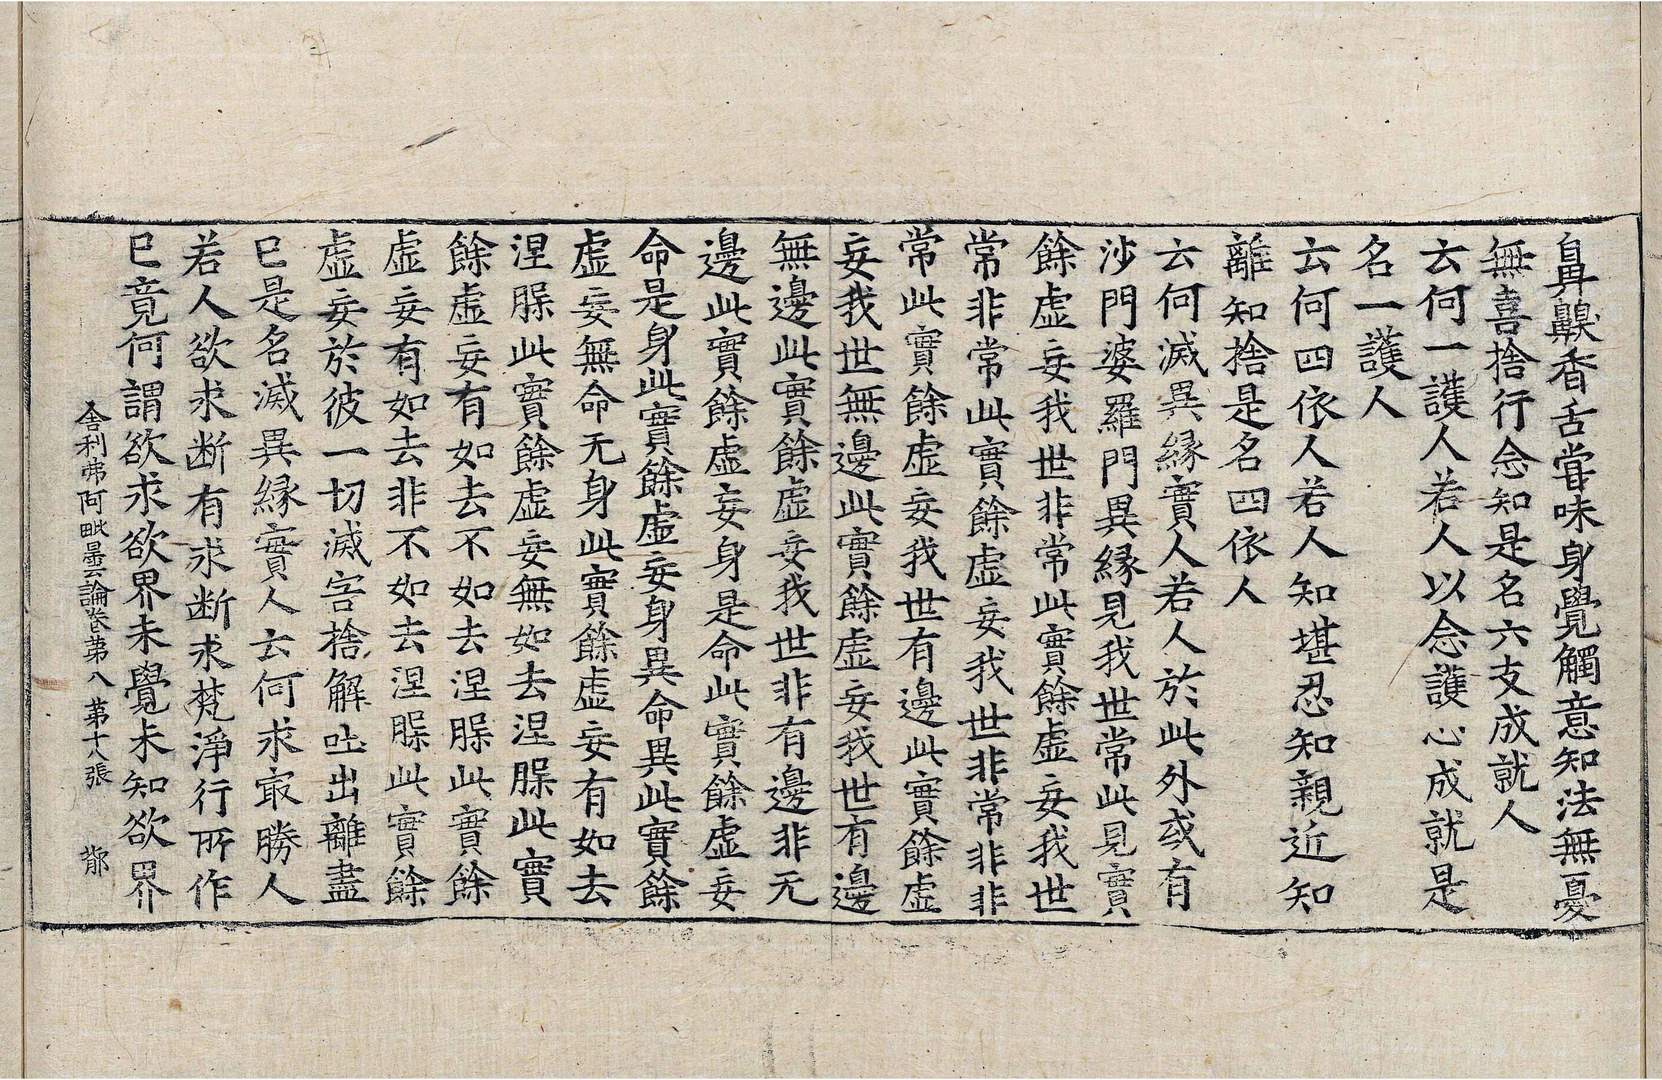 鼻齅香舌甞味身覺觸意知法無憂
無喜捨行念知是名六支成就人
云何一護人若人以念護心成就是
名一護人
云何四依人若人知堪忍知親近知
離知捨是名四依人
云何滅異緣實人若人於此外或有
沙門婆羅門異緣見我世常此見實
餘虛妄我世非常此實餘虛妄我世
常非常此實餘虛妄我世非常非非
常此實餘虛妄我世有邊此實餘虛
妄我世無邊此實餘虛妄我世有邊
無邊此實餘虛妄我世非有邊非无
邊此實餘虛妄身是命此實餘虛妄
命是身此實餘虛妄身異命異此實餘
虛妄無命无身此實餘虛妄有如去
涅脲此實餘虛妄無如去涅脲此實
餘虛妄有如去不如去涅脲此實餘
虛妄有如去非不如去涅脲此實餘
虛妄於彼一切滅害捨解吐出離盡
已是名滅異緣實人云何求㝡勝人
若人欲求断有求断求梵淨行所作
已竟何謂欲求欲界未覺未知欲界
舍利弗阿毗曇論卷第八 第十八張 鄁